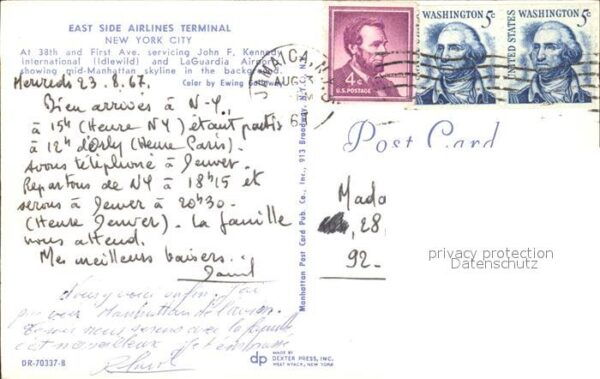 EAST SIDE AIRLINES TERMINAL
NEW YORK CITY
At 38th and First Ave. servicing John F. Kennedy
International (Idlewild) and LaGuardia Airports
showing mid-Manhattan skyline in the background.
Color by Ewing
Mercredi 23.8.67.
Bien arrivés à N-Y.
à 15h (Heure NY) étant partis
à 12h d'Orly (Heure Paris).
Avons téléphoné à Denver.
Repartons de NY à 18h15 et
serons à Denver à 20h30-
(Heure Denver). La famille
nous attend.
Mes meilleurs baisers.
Nous y voici enfin. J'ai
pu voir Manhattan de l'avion.
nous serons avec la famille
c'est merveilleux. Je t'embrasse
DR-70337-B
dp
MADE BY
DEXTER PRESS, INC.
WEST NYACK, NEW YORK
Manhattan Post Card Pub. Co., Inc., 913 Broadway, N.Y.C.
JAMAICA, N.Y.
AUG
4¢
U.S. POSTAGE
WASHINGTON 5¢
UNITED STATES
WASHINGTON 5¢
Post Card
Mada
, 28
92-
privacy protection
Datenschutz